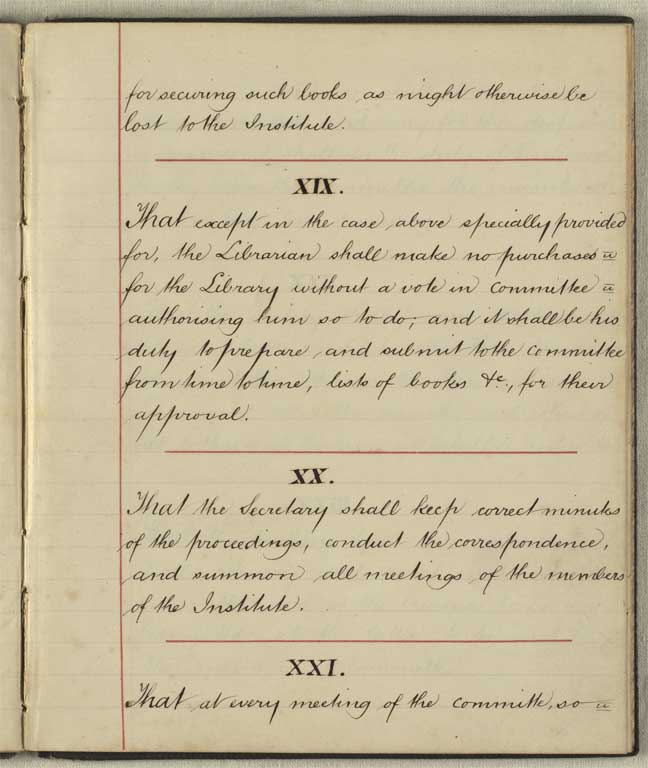 for securing such books as might otherwise be
lost to the Institute.
XIX.
That except in the case above specially provided
for, the Librarian shall make no purchases
for the Library without a vote in committee
authorising him so to do; and it shall be his
duty to prepare and submit to the committee
from time to time, lists of books &c., for their
approval.
XX.
That the Secretary shall keep correct minutes
of the proceedings, conduct the correspondence,
and summon all meetings of the members
of the Institute.
XXI.
That at every meeting of the committe, so